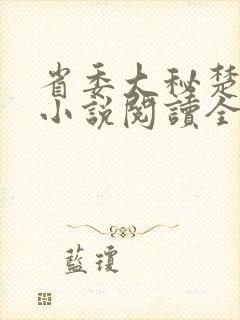 省委大秘楚
小説閱讀全
藍瓊